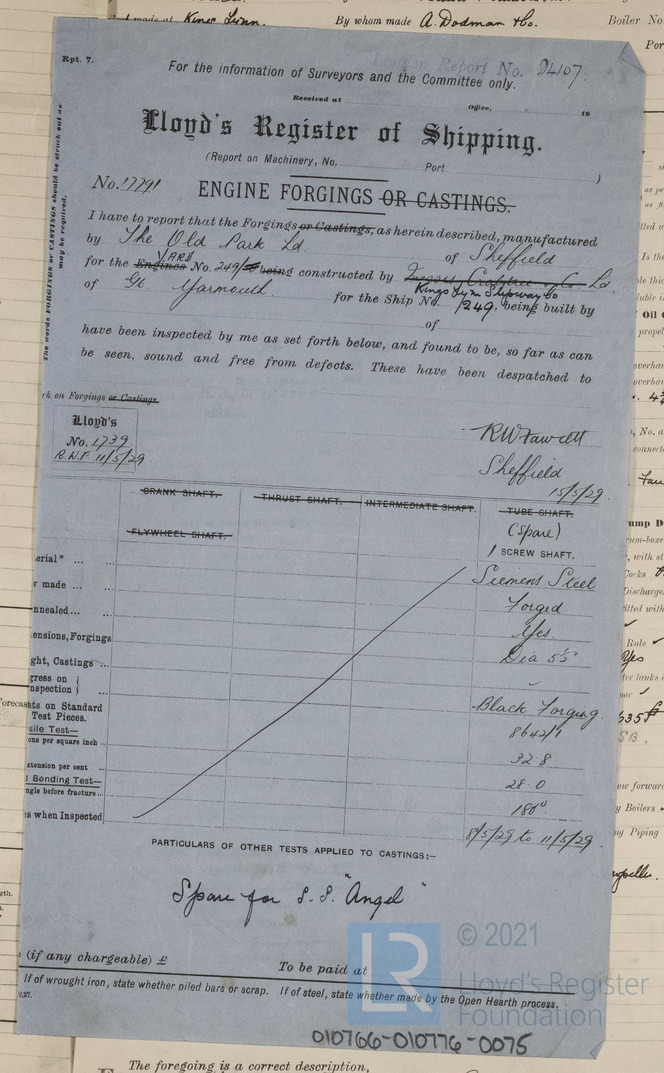 Kings Lynn. By whom made A. Dodman & Co. Boiler No
Por
Rpt. 7.
London Report No. 24107.
For the information of Surveyors and the Committee only.
Received at Office, 19
Lloyd's Register of Shipping.
(Report on Machinery, No. Port )
No. 17791
ENGINE FORGINGS OR CASTINGS.
The words FORGINGS or CASTINGS should be struck out as
may be required.
I have to report that the Forgings or Castings, as herein described, manufactured
by The Old Park Ld of Sheffield
YARD
for the Engines No. 249 being constructed by Ld.
Kings Lynn Slipway Co
of Gt. Yarmouth for the Ship No. 249, being built by
of
have been inspected by me as set forth below, and found to be, so far as can
be seen, sound and free from defects. These have been despatched to
rk on Forgings or Castings
Lloyd's
No. 1739.
R.W.F. 11/5/29
RW Fawcett
Sheffield
15/5/29.
CRANK SHAFT. THRUST SHAFT. INTERMEDIATE SHAFT. TUBE SHAFT.
(Spare)
FLYWHEEL SHAFT. 1 SCREW SHAFT.
erial* ... ... Siemens Steel
r made ... ... Forged
nnealed... ... Yes
ensions, Forgings Dia 5½"
ght, Castings ...
gress on
nspection Black Forging
ts on Standard
Test Pieces. 8642/9
sile Test—
ons per square inch 32.8
xtension per cent 28.0
l Bending Test—
ngle before fracture 180°.
s when Inspected 8/5/29 to 11/5/29.
PARTICULARS OF OTHER TESTS APPLIED TO CASTINGS:–
Spare for S.S. "Angel"
(if any chargeable) £ To be paid at
If of wrought iron, state whether piled bars or scrap. If of steel, state whether made by the Open Hearth process.
LR
© 2021
Lloyd's Register
Foundation
010766-010776-0075
The foregoing is a correct description,